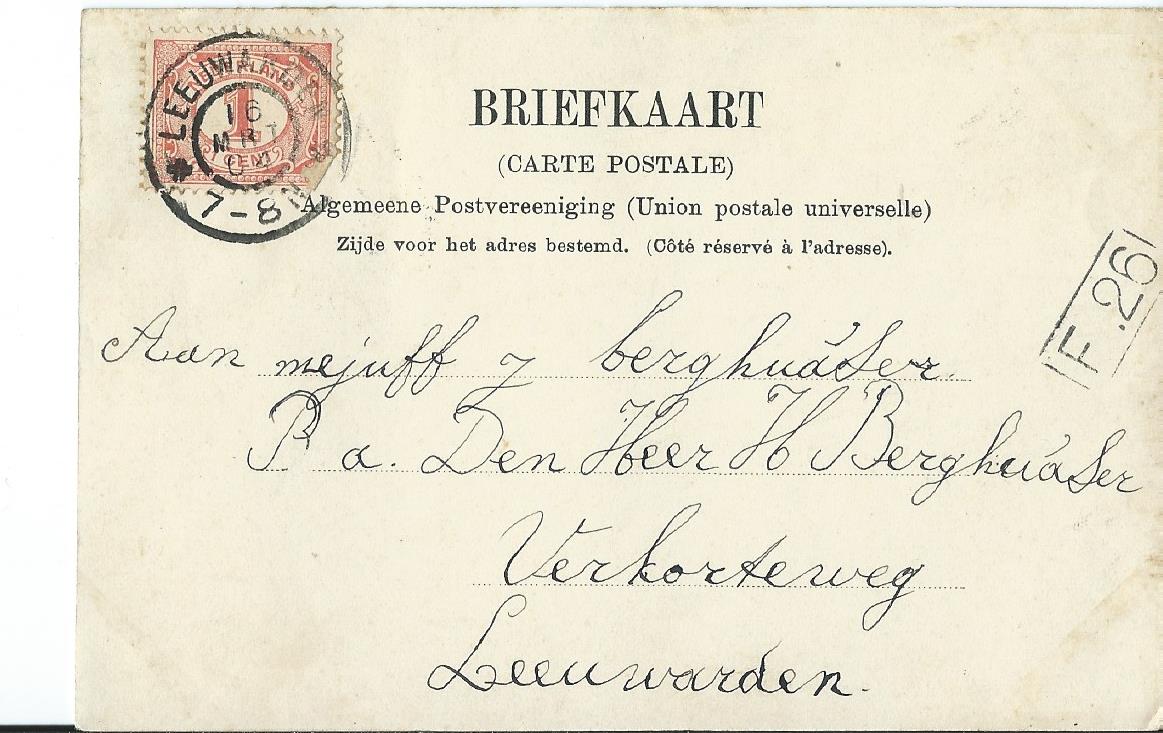 LEEUWARDEN
16
MRT
04
7-8N
NEDERLAND
1
1 CENT
BRIEFKAART
(CARTE POSTALE)
Algemeene Postvereeniging (Union postale universelle)
Zijde voor het adres bestemd. (Côté réservé à l'adresse).
F.26
Aan mejuff J berghuáSer.
P a. Den Heer H BerghuáSer
Verkorteweg
Leeuwarden.